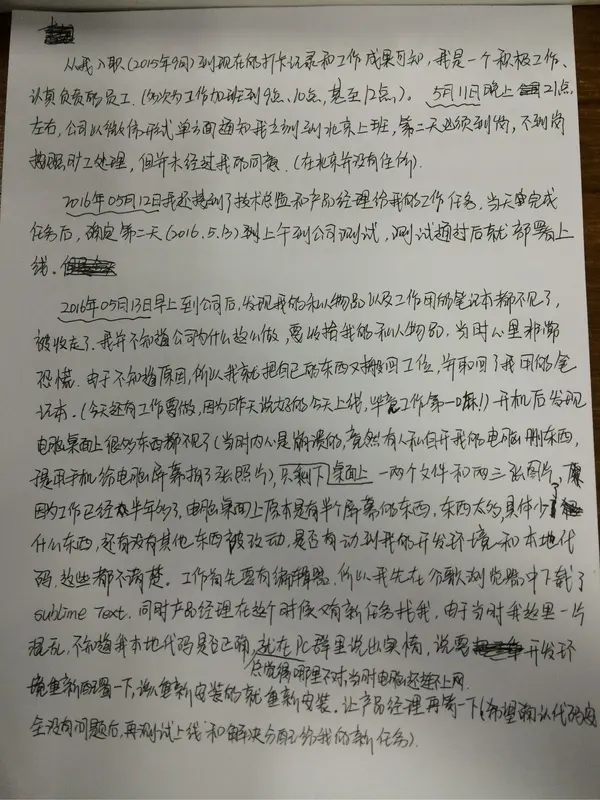 从我入职(2015年9月)到现在的打卡记录和工作成果可知,我是一个积极工作、
认真负责的员工.(多次为工作加班到9点、10点,甚至12点,)。5月11日晚上21点
左右,公司以微信形式单方面通知我立刻到北京上班,第二天必须到岗,不到岗
按照旷工处理,但并未经过我的同意.(在北京并没有住所).
2016年05月12日我还接到了技术总监和产品经理给我的工作任务.当天完成
任务后,确定第二天(2016.5.13)上午到公司测试,测试通过后就部署上
线.
2016年05月13日早上到公司后,发现我的私人物品以及工作用的笔记本都不见了,
被收走了.我并不知道公司为什么这么做,要收拾我的私人物品.当时心里非常
恐慌.由于不知道原因,所以我就把自己的东西又搬回工位,并取回了我用的笔
记本.(今天还有工作要做,因为昨天说好的今天上线,毕竟工作第一嘛!)开机后发现
电脑桌面上很多东西都不见了(当时内心是崩溃的,竟然有人私自开我的电脑删东西,
遂用手机给电脑屏幕拍了张照片),只剩下桌面上一两个文件和两三张图片,
因为工作已经半年多了,电脑桌面上原本是有半个屏幕的东西,东西太多,具体少了
什么东西,还有没有其他东西被改动,是否有动到我的开发环境和本地代
码,这些都不清楚。工作首先要有编辑器.所以我先在谷歌浏览器中下载了
sublime Text.同时产品经理在这个时候又有新任务找我,由于当时我这里一片
混乱,不知道我本地代码是否正确,就在PC群里说出实情,说要开发环
总觉得哪里不对,当时电脑还连不上网.
境重新配置一下,该重新安装的就重新安装.让产品经理再等一下(希望确认代码完
全没有问题后,再测试上线和解决分配给我的新任务).